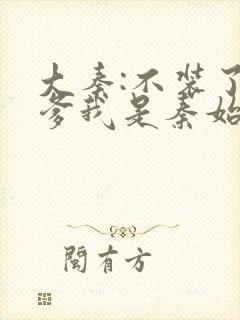 大秦:不装了
爹我是秦始
闽有方